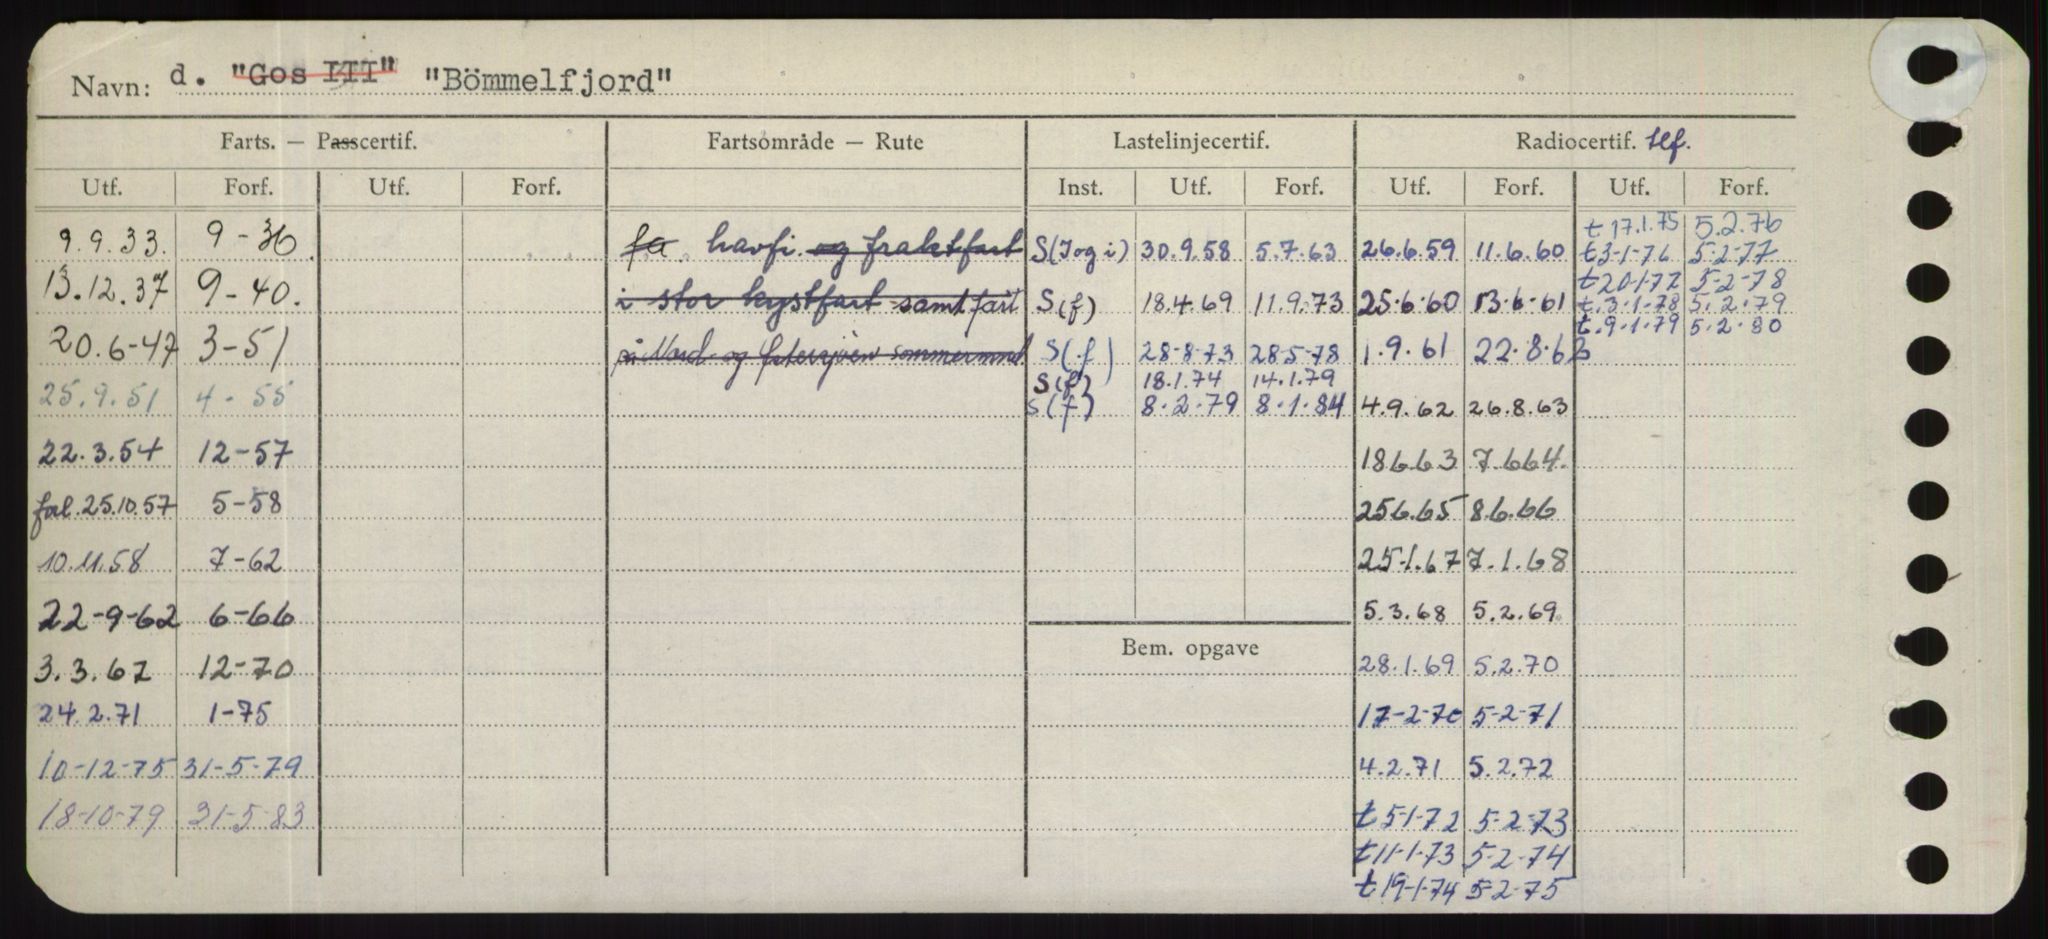 Navn: d. "Gos III" "Bömmelfjord"
Farts. — Passcertif. Fartsområde — Rute Lastelinjecertif. Radiocertif. tlf.
Utf. Forf. Utf. Forf. Inst. Utf. Forf. Utf. Forf. Utf. Forf.
t 17.1.75 5.2.76
9.9.33. 9-36 fa. havfi. og fraktfart S(I og i) 30.9.58 5.7.63 26.6.59 11.6.60 t3-1-76 5-2-77
t20-1-77 5-2-78
13.12.37 9-40. i stor kystfart samt fart S(f) 18.4.69 11.9.73 25.6.60 13.6.61 t.3-1-78 5.2.79
t.9-1.79 5.2.80
20.6-47 3-51 på Nord- og Østersjøen sommermnd S(f) 28-8-73 28-5-78 1.9.61 22.8.62
S(f) 18.1.74 14.1.79
25.9.51 4-55 S(f) 8.2.79 8.1.84 4.9.62 26.8.63
22.3.54 12-57 18663 7.664.
fal.25.10.57 5-58 256.65 8.6.66
10.11.58 7-62 25-1.67 7.1.68
22-9-62 6-66 5.3.68 5.2.69
Bem. opgave
3.3.67 12-70 28.1.69 5.2.70
24.2.71 1-75 17-2-70 5-2-71
10-12-75 31-5-79 4.2.71 5.2.72
18-10-79 31-5-83 t5-1-72 5-2-73
t11-1-73 5-2-74
t19-1-74 5-2-75